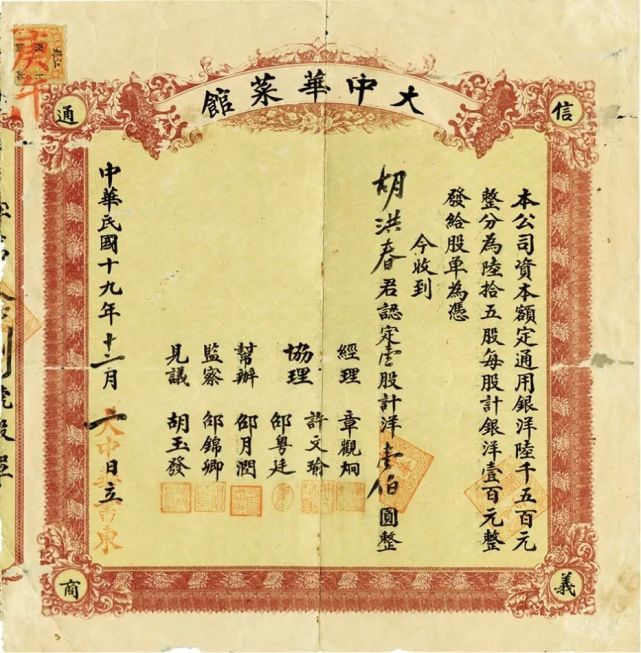 大中華菜館
信
義
通
商
本公司資本額定通用銀洋陸千五百元
整分為陸拾五股每股計銀洋壹百元整
發給股單為憑
今收到
胡洪春君認定壹股計洋壹佰圓整
經理 章觀炯
協理 許文瑜
邵粵廷
幫辦 邵月潤
監察 邵錦卿
見議 胡玉發
中華民國十九年十二月 日立
庚午
號股單